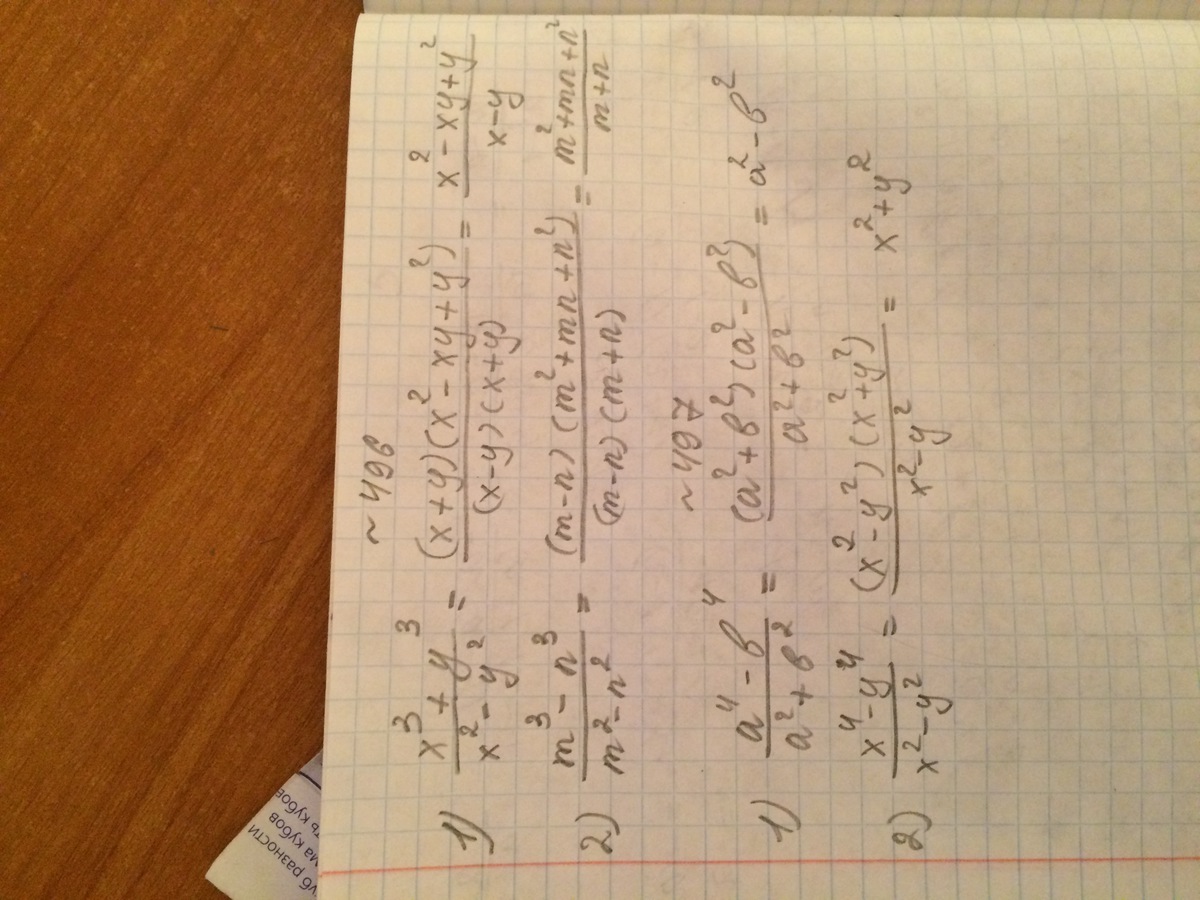 ~ 496
1) (x³ + y³)/(x² - y²) = ((x+y)(x² - xy + y²))/((x-y)(x+y)) = (x² - xy + y²)/(x-y)
2) (m³ - n³)/(m² - n²) = ((m-n)(m² + mn + n²))/((m-n)(m+n)) = (m² + mn + n²)/(m+n)
~ 497
1) (a⁴ - b⁴)/(a² + b²) = ((a² + b²)(a² - b²))/(a² + b²) = a² - b²
2) (x⁴ - y⁴)/(x² - y²) = ((x² - y²)(x² + y²))/(x² - y²) = x² + y²
уб разности
ма кубов
ть кубов